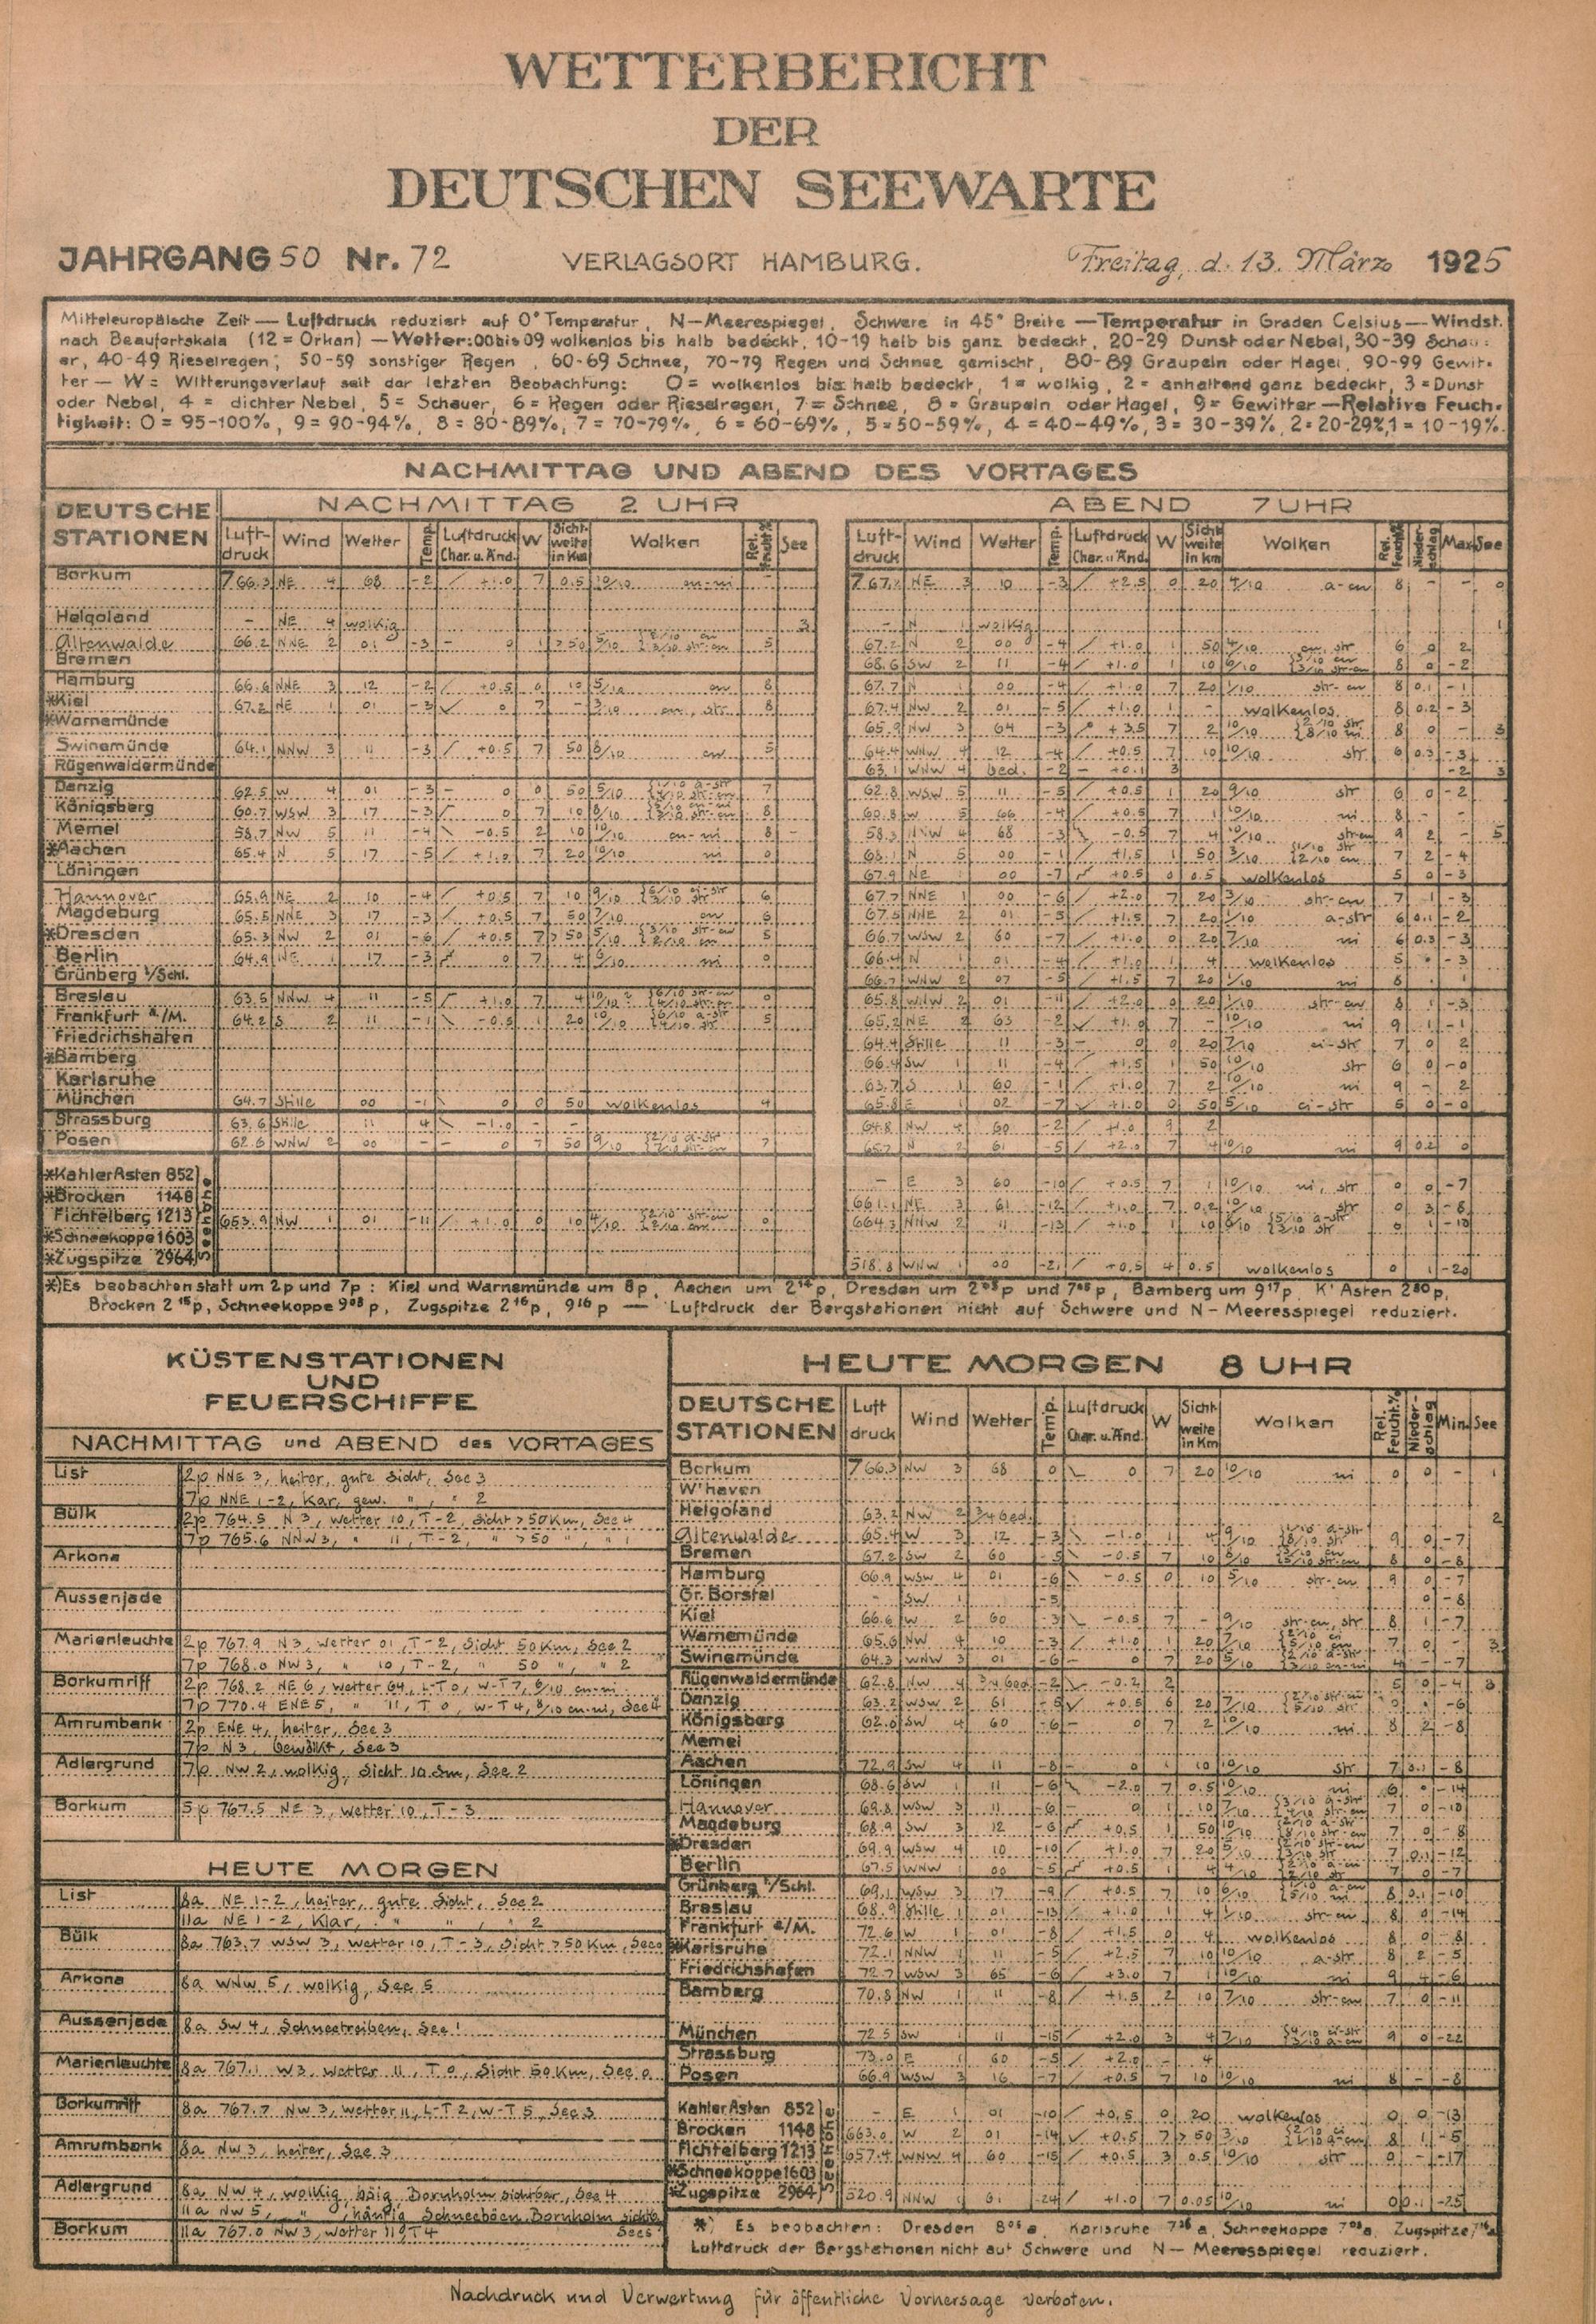 WETTERBERICHT
DER
DEUTSCHEN SEEWARTE
JAHRGANG 50 Nr. 72 VERLAGSORT HAMBURG. Freitag, d. 13. März 1925
Mitteleuropäische Zeit — Luftdruck reduziert auf 0° Temperatur, N—Meeresspiegel, Schwere in 45° Breite — Temperatur in Graden Celsius — Windst.
nach Beaufortskala (12 = Orkan) — Wetter: 00 bis 09 wolkenlos bis halb bedeckt, 10-19 halb bis ganz bedeckt, 20-29 Dunst oder Nebel, 30-39 Schau-
er, 40-49 Rieselregen, 50-59 sonstiger Regen, 60-69 Schnee, 70-79 Regen und Schnee gemischt, 80-89 Graupeln oder Hagel, 90-99 Gewit-
ter — W = Witterungsverlauf seit der letzten Beobachtung: 0 = wolkenlos bis halb bedeckt, 1 = wolkig, 2 = anhaltend ganz bedeckt, 3 = Dunst
oder Nebel, 4 = dichter Nebel, 5 = Schauer, 6 = Regen oder Rieselregen, 7 = Schnee, 8 = Graupeln oder Hagel, 9 = Gewitter — Relative Feuch-
tigkeit: 0 = 95-100%, 9 = 90-94%, 8 = 80-89%, 7 = 70-79%, 6 = 60-69%, 5 = 50-59%, 4 = 40-49%, 3 = 30-39%, 2 = 20-29%, 1 = 10-19%.
NACHMITTAG UND ABEND DES VORTAGES
DEUTSCHE STATIONEN NACHMITTAG 2 UHR ABEND 7 UHR
Luft-druck Wind Wetter Temp. Luftdruck Char. u. Änd. W Sicht-weite in Km Wolken Rel. Feucht.% See Luft-druck Wind Wetter Temp. Luftdruck Char. u. Änd. W Sicht-weite in Km Wolken Rel. Feucht.% Nieder-schlag Max See
Borkum 766.3 NE 4 68 -2 / +1.0 7 0.5 10/10 cu-ni - 767.2 NE 3 10 -3 / +2.5 0 20 4/10 a-cu 8 - - 0
Helgoland - NE 4 wolkig 3 - N 1 wolkig 1
Altenwalde 66.2 NNE 2 01 -3 - 0 1 >50 5 67.2 N 2 00 -4 / +1.0 1 50 4/10 cu, str 6 0 2
Bremen 68.6 SW 2 11 -4 / +1.0 1 10 6/10 8 0 -2
Hamburg 66.6 NNE 3 12 -2 / +0.5 0 10 5/10 cu 8 67.7 N 1 00 -4 / +1.0 7 20 1/10 str-cu 8 0.1 -1
*Kiel 67.2 NE 1 01 -3 0 7 - 3/10 cu, str 8 67.4 NW 2 01 -5 / +1.0 1 - wolkenlos 8 0.2 -3
*Warnemünde 65.9 NW 3 64 -3 +3.5 7 2 10/10 2/10 str 8/10 ni 8 0 - 3
Swinemünde 64.1 NNW 3 11 -3 / +0.5 7 50 8/10 cu 5 64.4 WNW 4 12 -4 / +0.5 7 10 10/10 str 6 0.3 -3
Rügenwaldermünde 63.1 WNW 4 bed. -2 - +0.1 3 -2 3
Danzig 62.5 W 4 01 -3 - 0 0 50 5/10 7 62.8 WSW 5 11 -5 / +0.5 1 20 9/10 str 6 0 -2
Königsberg 60.7 WSW 3 17 -3 0 7 10 8/10 8 60.8 W 5 66 -4 / +0.5 7 1 10/10 ni 8 - -
Memel 58.7 NW 5 11 -4 \ -0.5 2 10 10/10 cu-ni 8 - 58.3 NNW 4 68 -3 -0.5 7 4 10/10 str-cu 9 2 - 5
*Aachen 65.4 N 5 17 -5 / +1.0 7 20 10/10 ni 0 68.1 N 5 00 -1 / +1.5 1 50 3/10 7 2 -4
Löningen 67.9 NE 1 00 -7 +0.5 0 0.5 wolkenlos 5 0 -3
Hannover 65.9 NE 2 10 -4 / +0.5 7 10 9/10 6 67.7 NNE 1 00 -6 / +2.0 7 20 3/10 str-cu 7 1 -3
Magdeburg 65.5 NNE 3 17 -3 / +0.5 7 50 7/10 cu 6 67.5 NNE 2 01 -5 / +1.5 7 20 1/10 a-str 6 0.1 -2
*Dresden 65.3 NW 2 01 -6 / +0.5 7 >50 5/10 5 66.7 WSW 2 60 -7 / +1.0 0 20 7/10 ni 6 0.3 -3
Berlin 64.9 NE 1 17 -3 0 7 4 6/10 ni 0 66.4 N 1 01 -4 / +1.0 1 4 wolkenlos 5 -3
Grünberg i/Schl. 66.7 WNW 2 07 -5 / +1.5 7 20 1/10 ni 8
Breslau 63.5 NNW 4 11 -5 +1.0 7 4 0 65.8 WNW 2 01 -11 +2.0 0 20 1/10 str-cu 8 1 -3
Frankfurt a/M. 64.2 S 2 11 -1 \ -0.5 1 20 10/10 6/10 a-str 4/10 str 5 65.2 NE 2 63 -2 +1.0 7 - 10/10 ni 9 1 -1
Friedrichshafen 64.4 Stille 11 -3 - 0 0 20 7/10 ci-str 7 0 2
*Bamberg 66.4 SW 1 11 -4 / +1.5 1 50 10/10 str 6 0 -0
Karlsruhe 63.7 S 1 60 -1 / +1.0 7 2 10/10 ni 9 - 2
München 64.7 Stille 00 -1 \ 0 0 50 wolkenlos 4 65.8 E 1 02 -7 +1.0 0 50 5/10 ci-str 5 0 -0
Strassburg 63.6 Stille 11 4 \ -1.0 - - 64.8 NW 4 60 -2 / +1.0 9 2
Posen 62.6 WNW 2 00 - - 0 7 50 9/10 7 65.7 N 2 61 -5 / +2.0 7 4 10/10 ni 9 0.2 0
Seehöhe
*Kahler Asten 852 - E 3 60 -10 / +0.5 7 1 10/10 ni, str 0 0 -7
*Brocken 1148 661.1 NE 3 61 -12 / +1.0 7 0.2 10/10 str 0 3 -8
Fichtelberg 1213 653.9 NW 1 01 -11 / +1.0 0 10 4/10 0 664.3 NNW 2 11 -13 / +1.0 1 10 8/10 5/10 a-str 3/10 str 0 1 -10
*Schneekoppe 1603
*Zugspitze 2964 518.8 WNW 1 00 -21 / +0.5 4 0.5 wolkenlos 0 1 -20
*) Es beobachten statt um 2p und 7p: Kiel und Warnemünde um 8p, Aachen um 2 14 p, Dresden um 2 05 p und 7 05 p, Bamberg um 9 17 p, K' Asten 2 30 p,
Brocken 2 15 p, Schneekoppe 9 08 p, Zugspitze 2 16 p, 9 16 p — Luftdruck der Bergstationen nicht auf Schwere und N—Meeresspiegel reduziert.
KÜSTENSTATIONEN
UND
FEUERSCHIFFE
NACHMITTAG und ABEND des VORTAGES
List 2p NNE 3, heiter, gute Sicht, See 3
7p NNE 1-2, klar, gew. " , " 2
Bülk 2p 764.5 N 3, Wetter 10, T-2, Sicht >50 Km, See 4
7p 765.6 NNW 3, " 11, T-2, " >50 " , " 1
Arkona
Aussenjade
Marienleuchte 2p 767.9 N 3, Wetter 01, T-2, Sicht 50 Km, See 2
7p 768.0 NW 3, " 10, T-2, " 50 " , " 2
Borkumriff 2p 768.2 NE 6, Wetter 64, L-T 0, W-T 7, 8/10 cu-ni
7p 770.4 ENE 5, " 11, T 0, W-T 4, 8/10 cu-ni, See 4
Amrumbank 2p ENE 4, heiter, See 3
7p N 3, bewölkt, See 3
Adlergrund 7p NW 2, wolkig, Sicht 10 Sm, See 2
Borkum 5p 767.5 NE 3, Wetter 10, T-3
HEUTE MORGEN
List 8a NE 1-2, heiter, gute Sicht, See 2
11a NE 1-2, klar, " " , " 2
Bülk 8a 763.7 WSW 3, Wetter 10, T-3, Sicht >50 Km, See
Arkona 8a WNW 5, wolkig, See 5
Aussenjade 8a SW 4, Schneetreiben, See 1
Marienleuchte 8a 767.1 W 3, Wetter 11, T 0, Sicht 50 Km, See 0
Borkumriff 8a 767.7 NW 3, Wetter 11, L-T 2, W-T 5, See 3
Amrumbank 8a NW 3, heiter, See 3
Adlergrund 8a NW 4, wolkig, böig, Bornholm sichtbar, See 4
11a NW 5, " , häufig Schneeböen, Bornholm sichtb.
Borkum 11a 767.0 NW 3, Wetter 11, T 4 See 5
HEUTE MORGEN 8 UHR
DEUTSCHE STATIONEN Luft druck Wind Wetter Temp. Luftdruck Char. u. Änd. W Sicht-weite in Km Wolken Rel. Feucht.% Nieder-schlag Min. See
Borkum 766.3 NW 3 68 0 \ 0 7 20 10/10 ni 0 0 - 1
W'haven
Helgoland 63.2 NW 2 3/4 bed. 2
Altenwalde 65.4 W 3 12 -3 \ -1.0 1 4 9/10 1/10 a-str 8/10 str 9 0 -7
Bremen 67.2 SW 2 60 -5 \ -0.5 7 10 8/10 8 0 -8
Hamburg 66.9 WSW 4 01 -6 -0.5 0 10 5/10 str-cu 9 0 -7
Gr. Borstel - SW 1 -5 0 -8
Kiel 66.6 W 2 60 -3 \ -0.5 7 - 9/10 str-cu, str 8 1 -7
Warnemünde 65.6 NW 4 10 -3 / +1.0 1 20 7/10 7 0 - 3
Swinemünde 64.3 WNW 3 01 -6 - 0 7 20 5/10 - -7
Rügenwaldermünde 62.8 NW 4 3/4 bed. -2 \ -0.2 2 5 0 -4 3
Danzig 63.2 WSW 2 61 -5 +0.5 6 20 7/10 2/10 str-cu 5/10 str -6
Königsberg 62.6 SW 4 60 -6 - 0 7 2 10/10 ni 8 2 -8
Memel
Aachen 72.9 SW 4 11 -8 - 0 1 10 10/10 str 7 3.1 -8
Löningen 68.6 SW 1 11 -6 -2.0 7 0.5 10/10 ni 6 -14
Hannover 69.8 WSW 3 11 -6 - 0 1 10 7/10 3/10 a-str 4/10 str-cu 7 0 -10
Magdeburg 68.9 SW 3 12 -6 +0.5 1 50 10/10 2/10 a-str 8/10 str-cu 7 0 -8
*Dresden 69.9 WSW 4 10 -10 / +1.0 7 20 5/10 2/10 str-cu 3/10 str 7 0.1 -12
Berlin 67.5 WNW 1 00 -5 +0.5 1 4 4/10 7 0 -7
Grünberg i/Schl. 69.1 WSW 3 17 -9 / +0.5 7 10 6/10 1/10 a-cu 5/10 ni 8 0.1 -10
Breslau 68.9 Stille 1 01 -13 / +1.0 1 4 1/10 str-cu 8 0 -14
Frankfurt a/M. 72.6 W 1 01 -8 / +1.5 0 4 wolkenlos 8 0 -8
*Karlsruhe 72.1 NNW 1 11 -5 / +2.5 7 10 10/10 a-str 8 2 -5
Friedrichshafen 72.7 WSW 3 65 -6 / +3.0 7 1 10/10 ni 9 4 -6
Bamberg 70.8 NW 1 11 -8 / +1.5 2 10 7/10 str-cu 7 0 -11
München 72.5 SW 1 11 -15 / +2.0 3 4 7/10 4/10 ci-str 3/10 a-cu 9 0 -22
Strassburg 73.0 E 1 60 -5 / +2.0 - 4
Posen 66.9 WSW 3 16 -7 / +0.5 7 10 10/10 ni 8 - -8
Seehöhe
Kahler Asten 852 - E 1 01 -10 / +0.5 0 20 wolkenlos 0 0 -13
Brocken 1148 663.0 W 2 01 -14 +0.5 7 >50 3/10 2/10 ci 1/10 a-cu 8 1 -5
Fichtelberg 1213 657.4 WNW 4 60 -15 / +0.5 3 0.5 10/10 str 0 - -17
*Schneekoppe 1603
*Zugspitze 2964 520.9 NNW 61 -24 / +1.0 7 0.05 10/10 ni 0 0.1 -25
*) Es beobachten: Dresden 8 05 a, Karlsruhe 7 26 a, Schneekoppe 7 08 a, Zugspitze 7 16 a
Luftdruck der Bergstationen nicht auf Schwere und N—Meeresspiegel reduziert.
Nachdruck und Verwertung für öffentliche Vorhersage verboten.